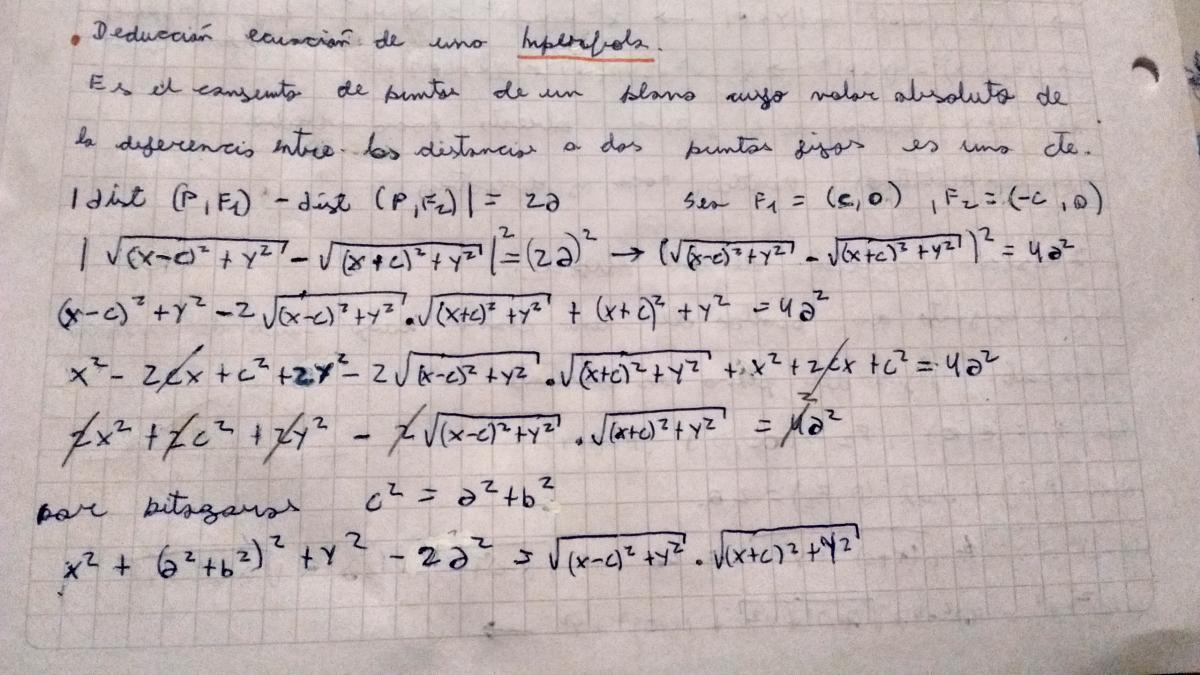 • Deducción ecuación de una hipérbola.
Es el conjunto de puntos de un plano cuyo valor absoluto de
la diferencia entre las distancias a dos puntos fijos es una cte.
|dist (P, F₁) - dist (P, F₂)| = 2a sea F₁ = (c, 0) , F₂ = (-c, 0)
|√((x-c)² + y²) - √((x+c)² + y²)|² = (2a)² → (√((x-c)² + y²) - √((x+c)² + y²))² = 4a²
(x-c)² + y² - 2√((x-c)² + y²) · √((x+c)² + y²) + (x+c)² + y² = 4a²
x² - 2cx + c² + 2y² - 2√((x-c)² + y²) · √((x+c)² + y²) + x² + 2cx + c² = 4a²
2x² + 2c² + 2y² - 2√((x-c)² + y²) · √((x+c)² + y²) = 4a² 2
por pitagoras c² = a² + b²
x² + (a² + b²)² + y² - 2a² = √((x-c)² + y²) · √((x+c)² + y²)